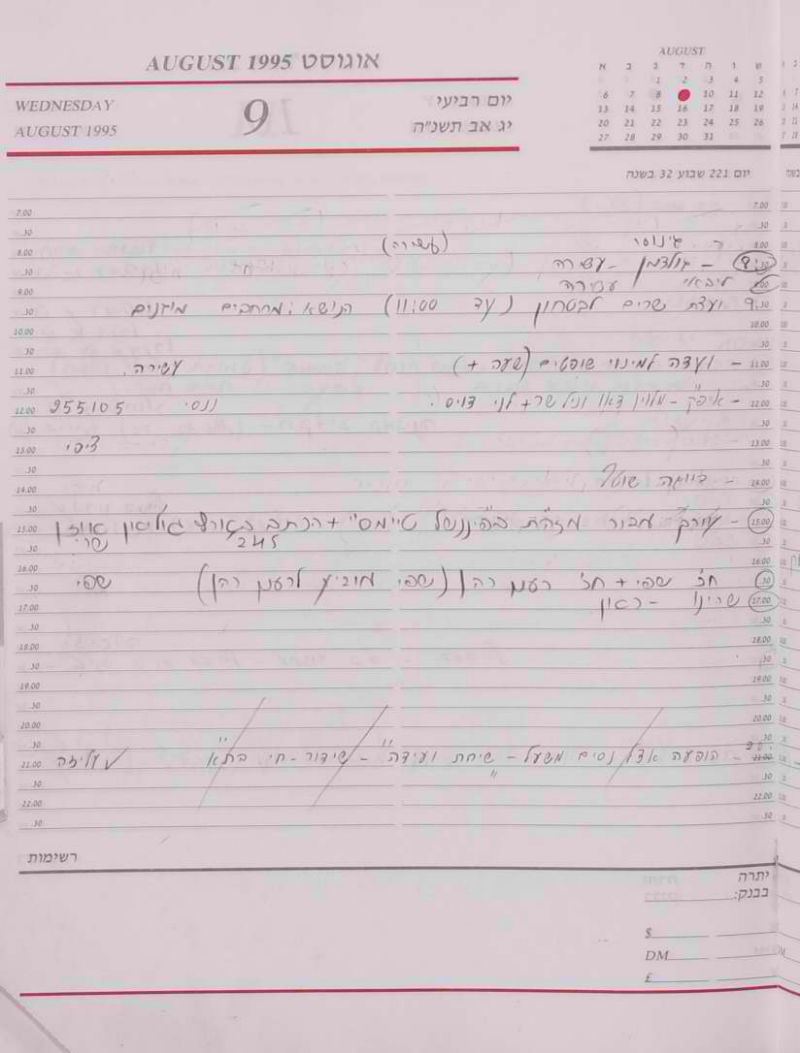 AUGUST 1995 אוגוסט
WEDNESDAY
AUGUST 1995
9
יום רביעי
יג אב תשנ"ה
AUGUST
א ב ג ד ה ו ש
1 2 3 4 5
6 7 8 10 11 12
13 14 15 16 17 18 19
20 21 22 23 24 25 26
27 28 29 30 31
יום 221 שבוע 32 בשנה
7.00
.30
8.00 גינוסר (עשירה)
.30 - גולדמן - עשירה
9.00 ליבאי עשירה
9:30 ועדת שרים לבטחון (עד 11:00) הנושא: מרחבים מוגנים
10.00
.30
11.00 - ועדה למינוי שופטים (שעה +) עשירה.
.30
12.00 - איפק - מלווין דאו וניל שר + לני דויס. ננסי 255105
.30
13.00 ציפי
.30
14.00 - שוטף
.30
15.00 - עורך מזה"ת ב"פיננשל טיימס" + הכתב בארץ ג'וליאן אוזן
.30 שרי 245
16.00
.30 חכ' שפי + חכ' רענן כהן (שפי מודיע לרענן כהן) שפי
17.00 - ראיון
.30
18.00
.30
19.00
.30
20.00
.30
21.00 - הופעה אצל נסים משעל - שיחת ועידה" - שידור - חי בת"א ✓ עליזה
.30
22.00
.30
רשימות
יתרה
בבנק:
$
DM
£